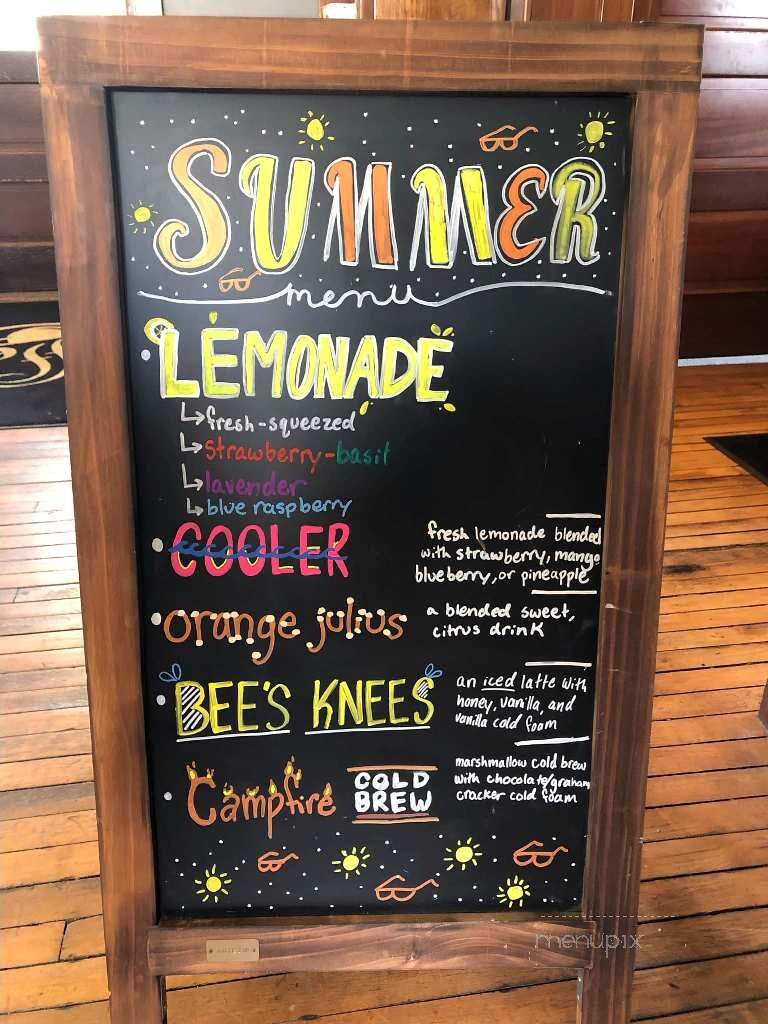 SUMMER
menu
LEMONADE
fresh-squeezed
strawberry-basil
lavender
blue raspberry
COOLER
fresh lemonade blended
with strawberry, mango
blueberry, or pineapple
orange julius
a blended sweet,
citrus drink
BEE'S KNEES
an iced latte with
honey, vanilla, and
vanilla cold foam
Campfire
COLD
BREW
marshmallow cold brew
with chocolate/graham
cracker cold foam
menupix